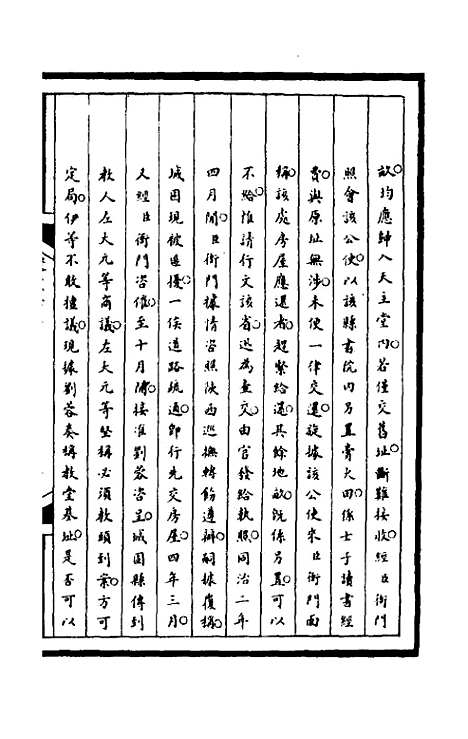 畝均應歸入天主堂內若僅交舊址斷難接收經臣衙門
照會該公使以該縣書院內另置膏火田係士子讀書經
費與原址無涉未便一律交還旋據該公使來臣衙門面
稱該處房屋應還者趕緊給還其餘地畝既係另置可以
不給惟請行文該省迅為查交由官發給執照同治二年
四月間臣衙門據情咨照陝西巡撫轉飭遵辦嗣據復稱
城固現被匪擾一俟道路疏通即行先交房屋四年三月
又經臣衙門咨催至十月間接准劉蓉咨呈城固縣傳到
教人左大元等商議左大元等堅稱必須教頭到案方可
定局伊等不敢擅議現據劉蓉奏稱教堂基址是否可以